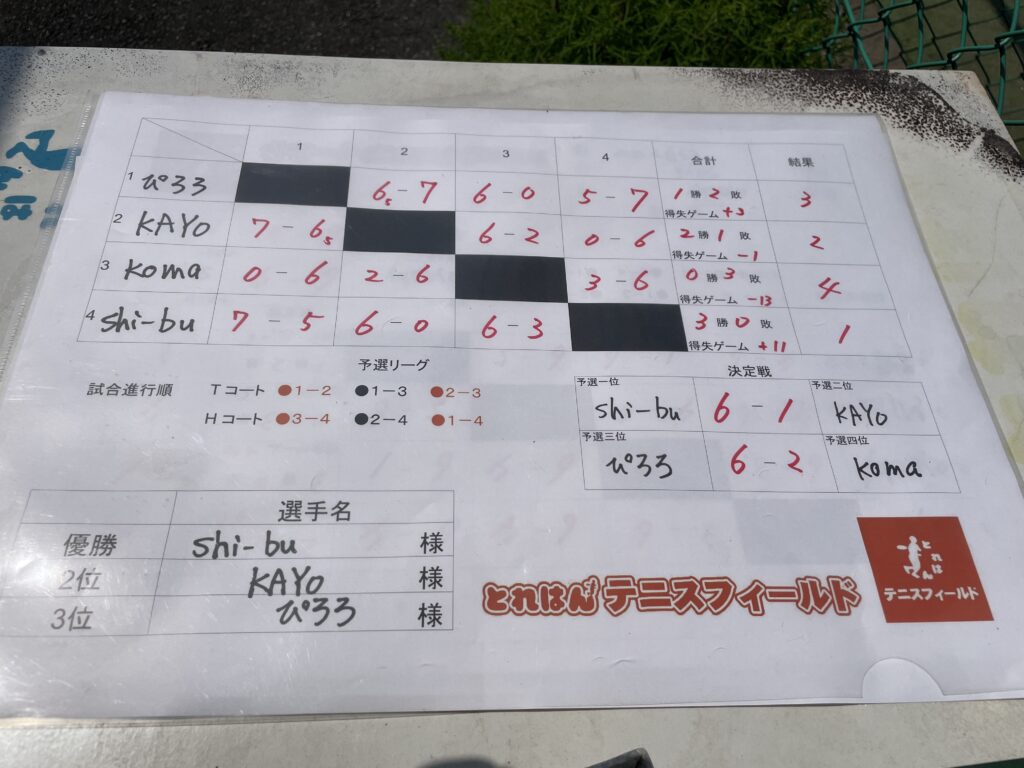 1 2 3 4 合計 結果
1 ぴろろ 6₅-7 6-0 5-7 1勝2敗 得失ゲーム +3 3
2 KAYO 7-6₅ 6-2 0-6 2勝1敗 得失ゲーム -1 2
3 koma 0-6 2-6 3-6 0勝3敗 得失ゲーム -13 4
4 shi-bu 7-5 6-0 6-3 3勝0敗 得失ゲーム +11 1
予選リーグ
試合進行順 Tコート ●1-2 ●1-3 ●2-3
Hコート ●3-4 ●2-4 ●1-4
決定戦
予選一位 shi-bu 6-1 予選二位 KAYO
予選三位 ぴろろ 6-2 予選四位 koma
選手名
優勝 shi-bu 様
2位 KAYO 様
3位 ぴろろ 様
とれはんテニスフィールド
とれはん
テニスフィールド